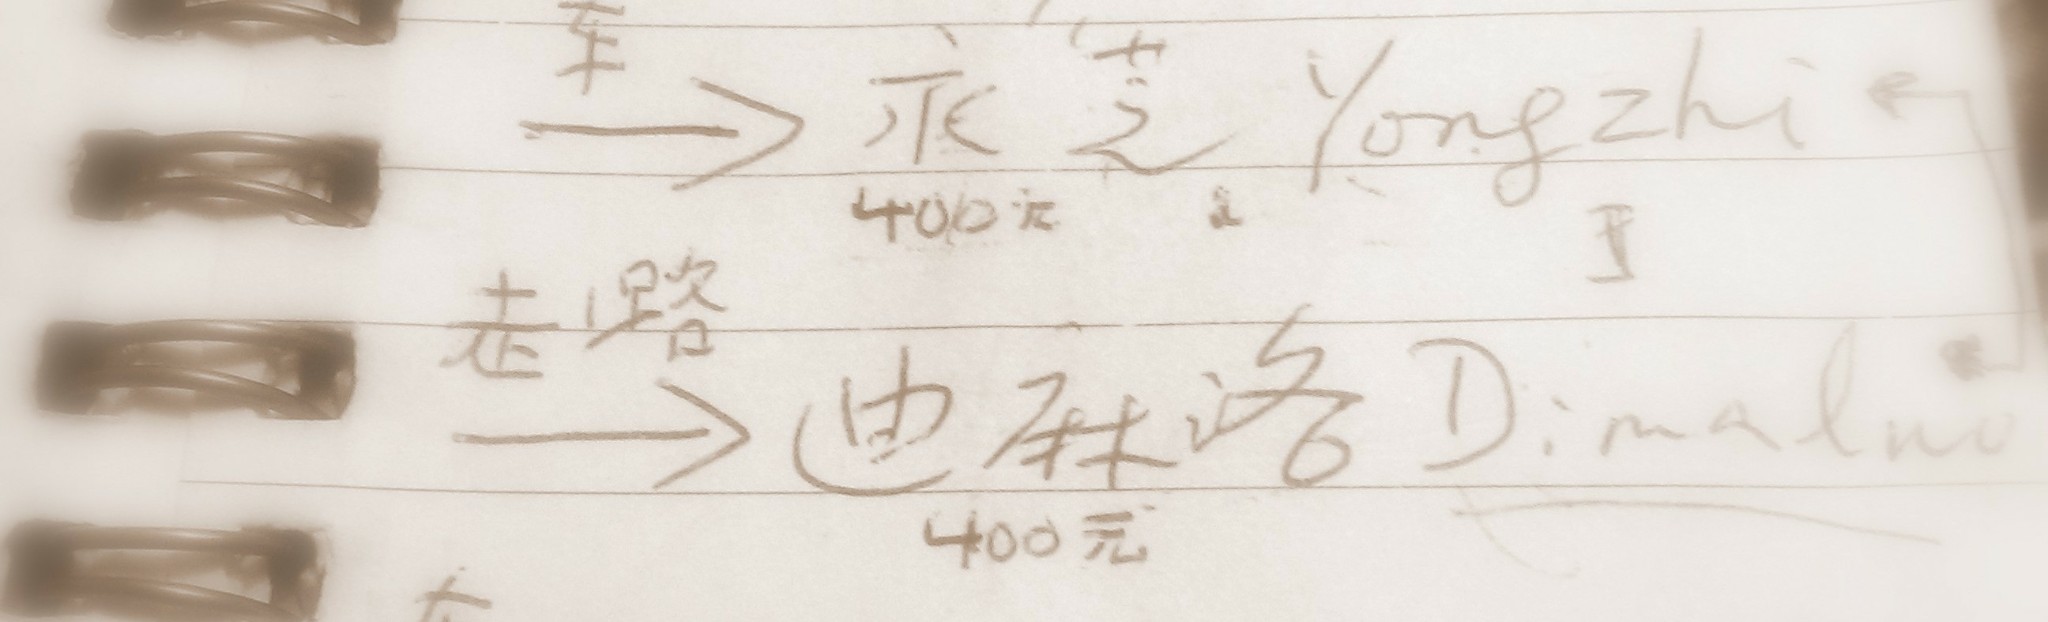 车
→ 永芝 Yongzhi
400元
走路
→ 迪麻洛 Dimaluo
400元